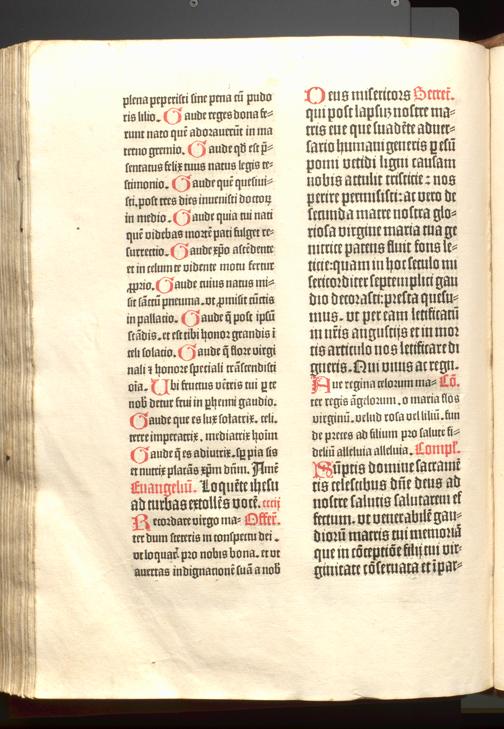 plena peperisti sine pena cū pudo
ris lilio. Gaude reges dona fe⸗
runt nato quē adorauerūt in ma
terno gremio. Gaude qd̄ est p̄⸗
sentatus felix tuus natus legis te⸗
stimonio. Gaude quē quesiui⸗
sti. post tres dies inuenisti doctoꝝ
in medio. Gaude quia tui nati
quē videbas mortē pati fulget re⸗
surrectio. Gaude xp̄o ascēdente
et in celum te vidente motu fertur
ꝓprio. Gaude cuius natus mi⸗
sit sāctū pneuma. vt ꝓmisit cūctis
in pallatio. Gaude q̄ post ipsū
scādis. et est tibi honor grandis ī
celi solatio. Gaude q̄ flore virgi
nali ⁊ honore speciali trāscendisti
oīa. Ubi fructus vētris tui ꝑ te
nob̄ detur frui in ꝑhenni gaudio.
Gaude que es lux solatrix. celi.
terre imperatrix. mediatrix hoīm
Gaude q̄ es adiutrix. sꝑ pia sis
et nutrix placās xp̄m dn̄m. Amē
Euangeliū. Loquēte ihesu
ad turbas extollēs vocē. cccij
Recordare virgo ma⸗ Offert̄.
ter dum steteris in conspectu dei.
vt loquar̄ pro nobis bona. et vt
auertas indignationē suā a nob̄
Deus misericors Secret̄.
qui post lapsuꝫ nostre ma⸗
tris eue que suadēte aduer⸗
sario humani generis ꝑ esū
pomi vetidi ligni causam
nobis attulit tristicie: nos
perire permisisti: ac vero de
secunda matre nostra glo⸗
riosa virgine maria tua ge
nitrice patens fluit fons le⸗
ticie: quam in hoc seculo mi
sericorditer septemplici gau
dio decorasti: presta quesu⸗
mus. vt per eam letificatū
in nr̄is angustijs et in mor
tis articulo nos letificare di
gneris. Qui viuis ac regn̄.
Aue regina celorum ma⸗ Cō.
ter regis āgelorum. o maria flos
virginū. velud rosa vel liliū. fun
de preces ad filium pro salute fi⸗
deliū alleluia alleluia. Compl̄.
Sūptis domine sacramē
tis celestibus dn̄e deus ad
nostre salutis salutarem ef
fectum. vt venerabilē gau⸗
diorū matris tui memoriā
que in cōceptiōe filij tui vir⸗
ginitate cōseruata et īpar⸗